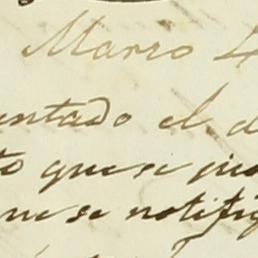 Marzo 4
entado el d
to que se pu
que se notifiq